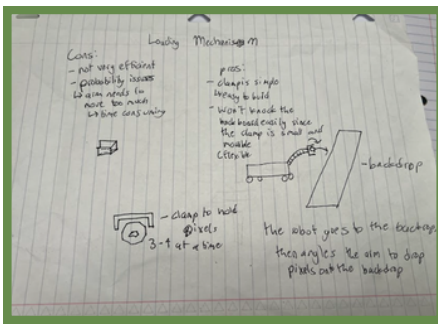 Loading Mechanism
Cons:
- not very efficient
- probability issues
↳ arm needs to
move too much
↳ time consuming
pros:
- clamp is simple
↳ easy to build
- Won't knock the
backboard easily since
the clamp is small and
movable
(flexible
- backdrop
- clamp to hold
pixels
3-4 at a time
the robot goes to the backdrop
then angles the arm to drop
pixels on the backdrop